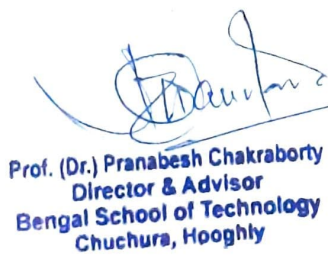 Prof. (Dr.) Pranabesh Chakraborty
Director & Advisor
Bengal School of Technology
Chuchura, Hooghly